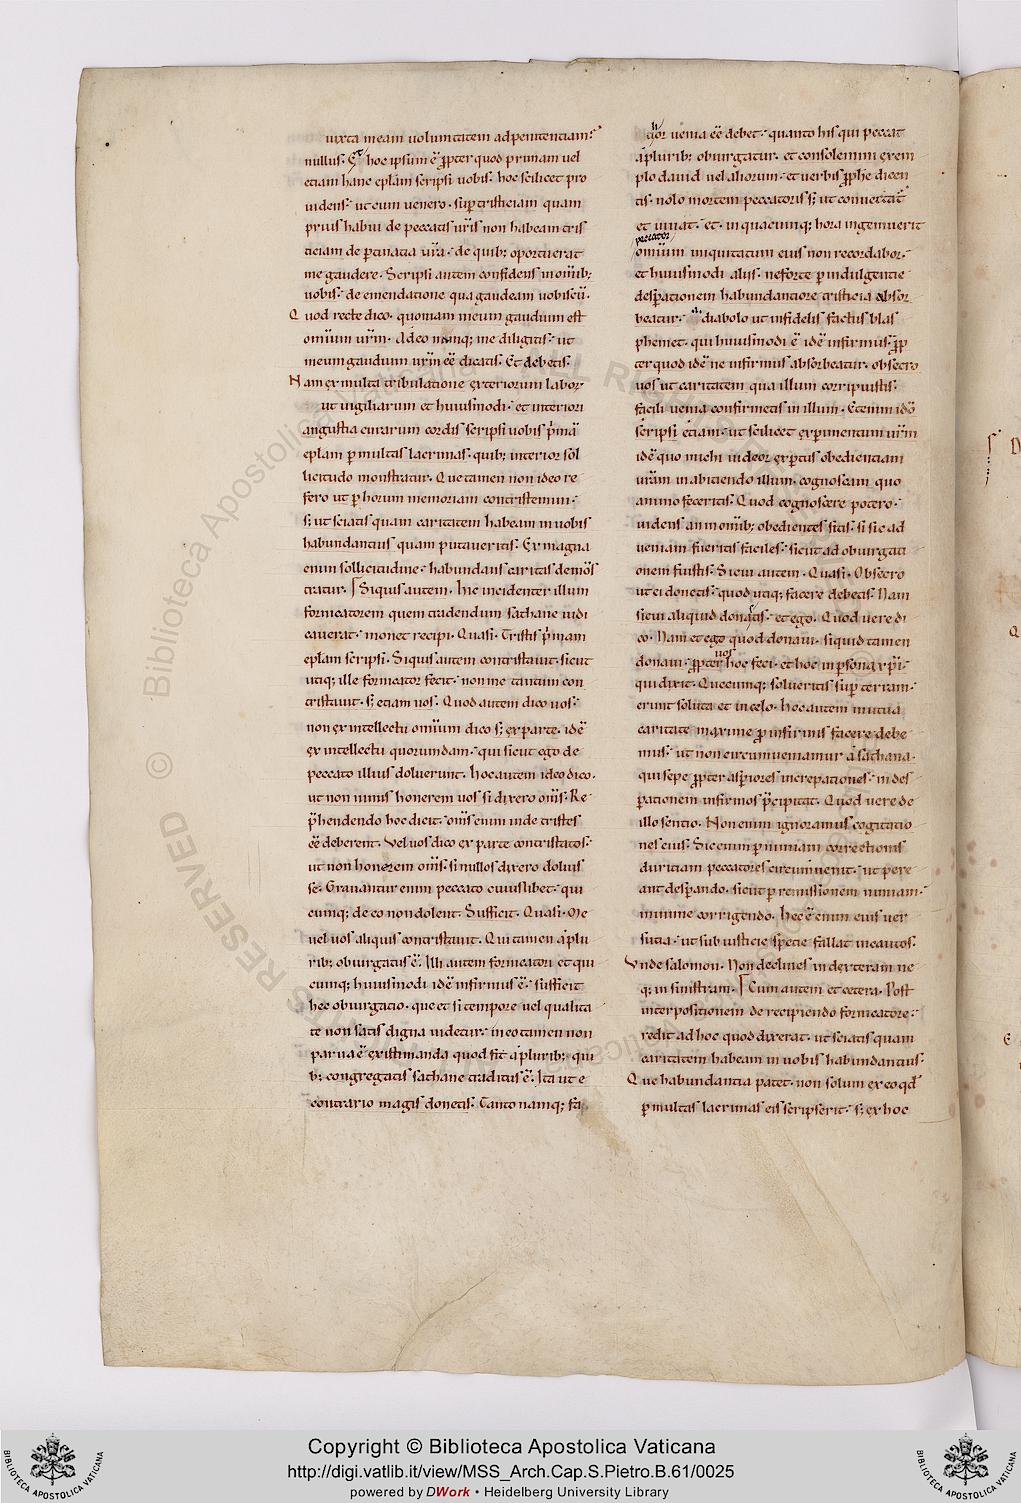 iuxta meam uoluntatem ad penitentiam:
nullus. Et hoc ipsum ē ꝓpter quod primam uel
etiam hanc eplām scripsi uobis. hoc scilicet pro
uidens. ut cum uenero. suꝑ tristiciam quam
prius habui de peccatis ur̄is non habeam tris
ticiam de ꝑtinatia ur̄a. de quib; oportuerat
me gaudere. Scripsi autem confidens in om̄ib;
uobis. de emendatione qua gaudeam uobiscū.
Quod recte dico. quoniam meum gaudium est
omium ur̄m. Adeo nanq; me diligitis. ut
meum gaudium ur̄m eē dicatis. Et debetis.
Nam ex multa tribulatione exteriorum labor
ut uigiliarum et huiusmodi. et interiori
angustia curarum cordis scripsi uobis p̄mā
eplam ꝑ multas lacrimas. quib; interior sol
licitudo monstratur. Que tamen non ideo re
fero ut ꝑ horum memoriam contristemini.
s; ut sciatis quam caritatem habeam in uobis
habundantius quam putaueritis. Ex magna
enim sollicitudine. habundans caritas demōs
tratur. Siquis autem. hic incidenter illum
fornicatorem quem tradendum sathane iudi
cauerat. monet recipi. Quasi. Tristis p̄mam
eplam scripsi. Siquis autem contristauit. sicut
utiq; ille fornicator fecit. non me tantum con
tristauit. s; etiam uos. Quod autem dico uos.
non ex intellectu omium dico s; ex parte. idē
ex intellectu quorundam. qui sicut ego de
peccato illius doluerunt. hoc autem ideo dico.
ut non nimis honerem uos si dixero om̄s. Re
p̄hendendo hoc dicit. om̄s enim inde tristes
eē deberent. Vel uos dico ex parte contristatos.
ut non honerem om̄s. si nullos dixero doluis
se. Grauantur enim peccato cuiuslibet. qui
cumq; de eo non dolent. Sufficit. Quasi. Me
uel uos aliquis contristauit. Qui tamen a plu
rib; obiurgatus ē. Illi autem fornicatori et qui
cumq; huiusmodi idē infirmus ē. sufficit
hec obiurgatio. que et si tempore uel qualita
te non satis digna uidetur. in eo tamen non
parua ē existimanda quod fit a plurib;. qui
b; congregatis sathane traditus ē. Ita ut e
contrario magis donetis. Tanto namq; fa
lior uenia eē debet. quanto his qui peccat
a plurib; obiurgatur. et consolemini exem
plo dauid uel aliorum. et uerbis ꝓphe dicen
tis. nolo mortem peccatoris s; ut conuertat
et uiuat. et. in quacumq; hora ingemuerit
peccator
omium iniquitatum eius non recordabor.
et huiusmodi aliis. ne forte ꝑ indulgentie
desꝑationem habundantiore tristicia absor
beatur. a diabolo ut infidelis factus blas
phemet. qui huiusmodi ē idē infirmus. ꝓp
ter quod idē ne infirmus absorbeatur. obsecro
uos ut caritatem qua illum corripuistis.
facili uenia confirmetis in illum. Etenim idō
scripsi etiam. ut scilicet experimentum ur̄m
idē quo michi uideor exꝑtus obedientiam
ur̄am in abiciendo illum. cognoscam quo
animo feceritis. Quod cognoscere potero.
uidens an in om̄ib; obedientes sitis. si sic ad
ueniam fueritis faciles. sicut ad obiurgati
onem fuistis. Sicui autem. Quasi. Obsecro
ut ei donetis. quod utiq; facere debetis. Nam
sicui aliquid donastis. et ego. Quod uere di
co. Nam et ego quod donaui. siquid tamen
donaui. ꝓpter uos hoc feci. et hoc in persona xp̄i.
qui dixit. Quecumq; solueritis suꝑ terram.
erunt soluta et in celo. hoc autem mutua
caritate maxime ꝓ infirmis facere debe
mus. ut non circumueniamur a sathana.
qui sepe ꝓpter asꝑiores increpationes. in des
ꝑationem infirmos p̄cipitat. Quod uere de
illo sentio. Non enim ignoramus cogitatio
nes eius. Sic enim ꝑ nimiam correctionis
duritiam peccatores circumuenit. ut pere
ant desꝑando. sicut ꝑ remissionem nimiam.
minime corrigendo. hec ē enim eius uer
sutia. ut sub iusticie specie fallat incautos.
Vnde salomon. Non declines in dexteram ne
q; in sinistram. Cum autem et cetera. Post
interpositionem de recipiendo fornicatore.
redit ad hoc quod dixerat. ut sciatis quam
caritatem habeam in uobis habundantius.
Que habundantia patet. non solum ex eo qd
ꝑ multas lacrimas eis scripserit. s; ex hoc
© Biblioteca Apostolica Vaticana
ALL RIGHTS RESERVED
BIBLIOTECA APOSTOLICA VATICANA
Copyright © Biblioteca Apostolica Vaticana
http://digi.vatlib.it/view/MSS_Arch.Cap.S.Pietro.B.61/0025
powered by DWork • Heidelberg University Library
BIBLIOTECA APOSTOLICA VATICANA